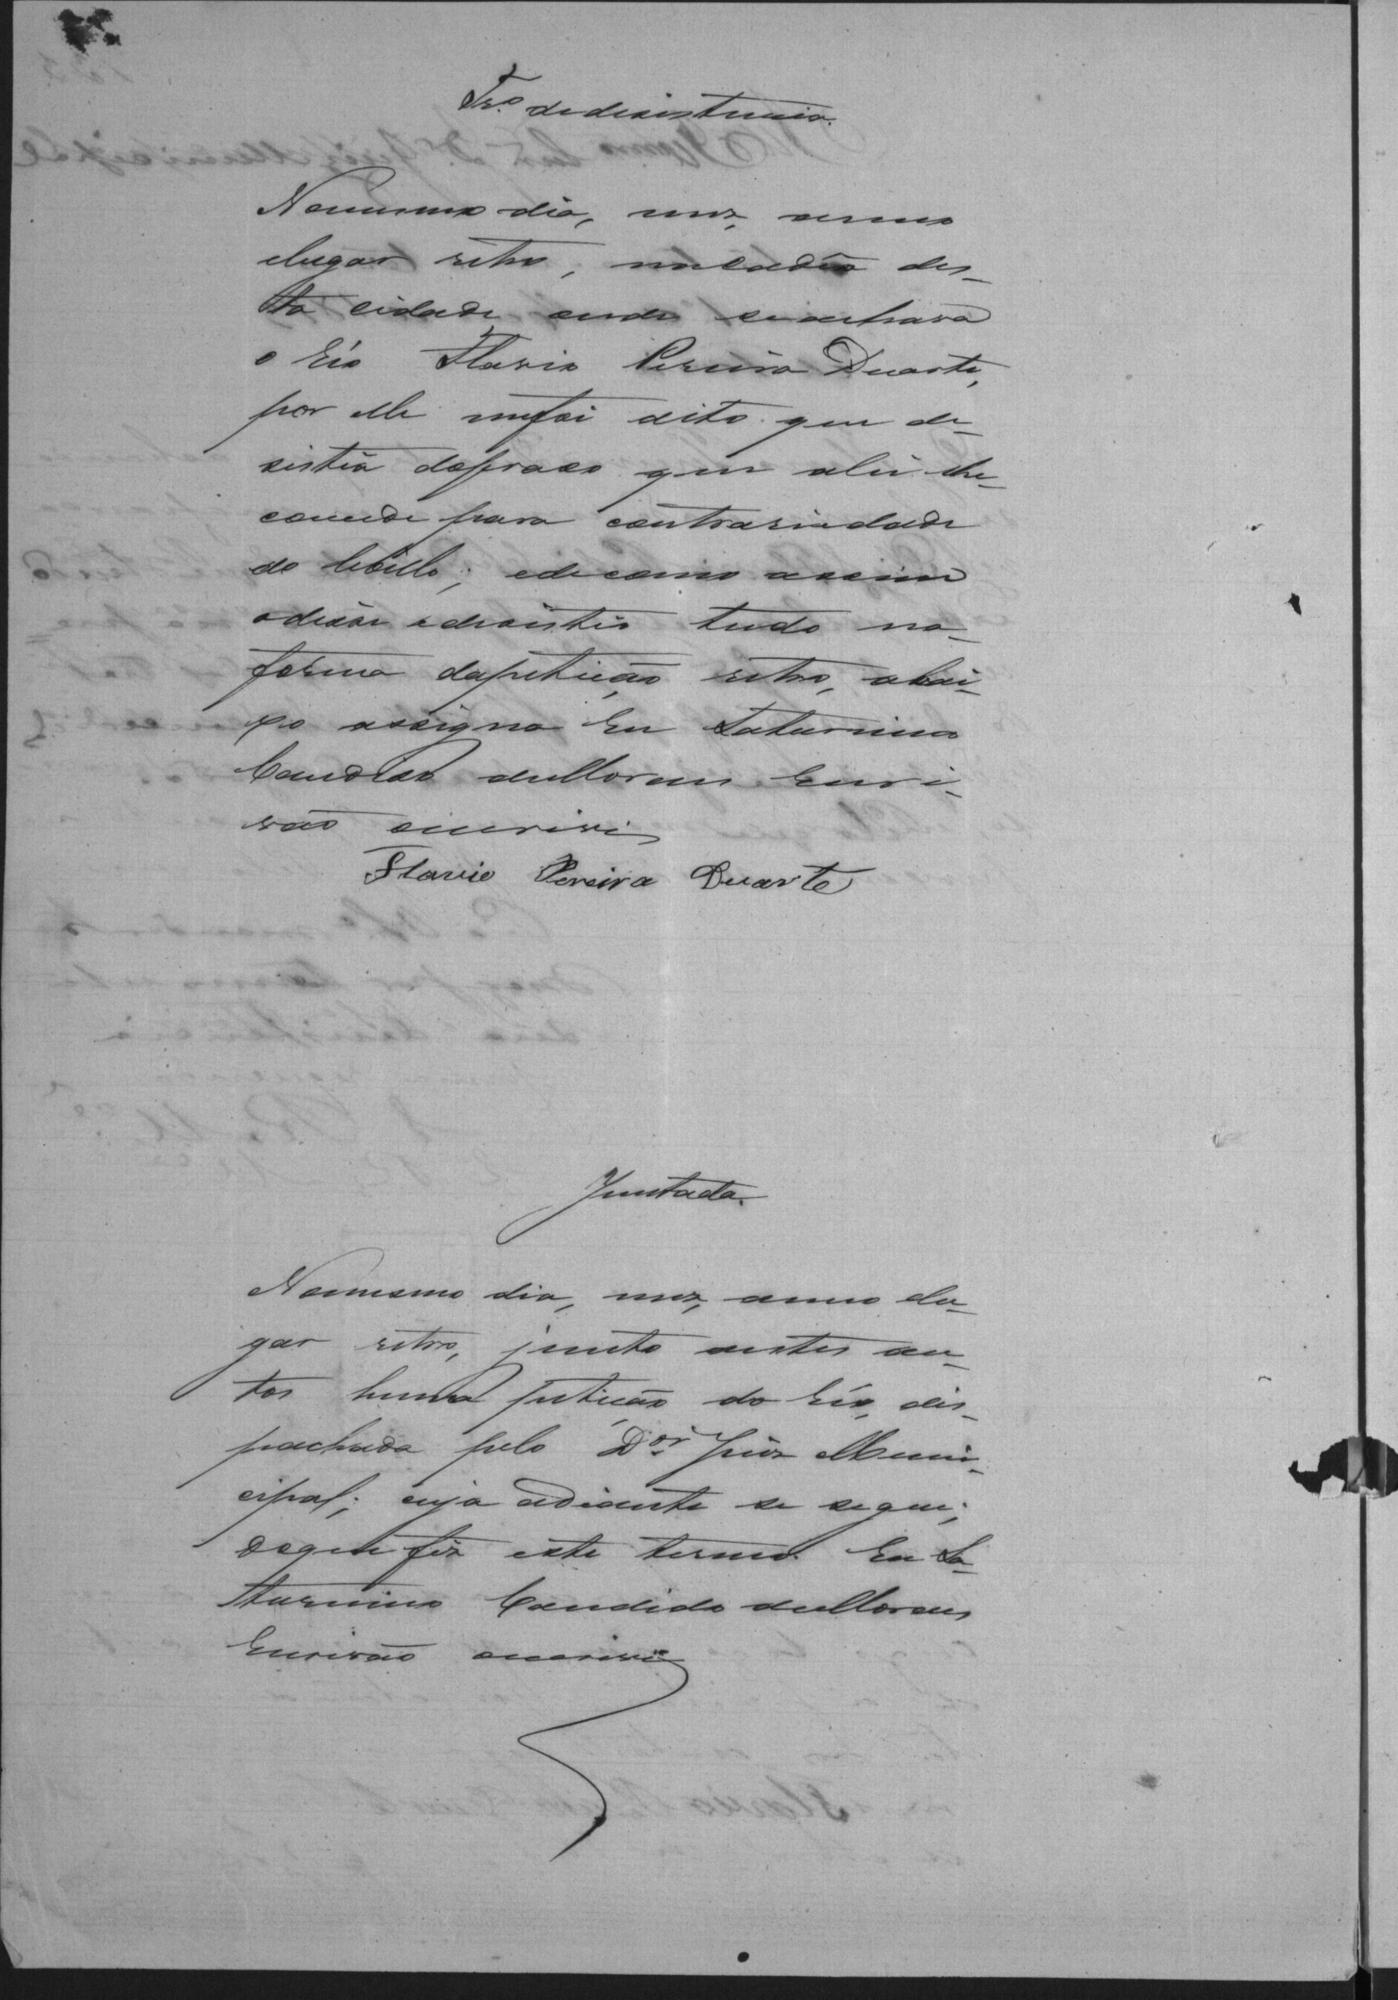 Tr.º de desistencia.
No mesmo dia, mez, anno
e lugar retro, na cadêa des-
ta cidade onde se achava
o Réo Flavio Pereira Duarte,
por elle me foi dito que de-
sistia do praso que a lei lhe
concede para contrariedade
do libello; e de como assim
o disse e desistio tudo na
forma da petição retro, abai-
xo assigna Eu Saturnino
Candido de Moraes Escri-
vão o escrivi
Flavio Pereira Duarte
Juntada.
No mesmo dia, mez, anno e lu-
gar retro, junto a estes au-
tos huma petição do Réo, des-
pachada pelo D.or Juiz Muni-
cipal; cuja adiante se segue;
do que fiz este termo. Eu Sa-
turnino Candido de Moraes
Escrivão o escrivi